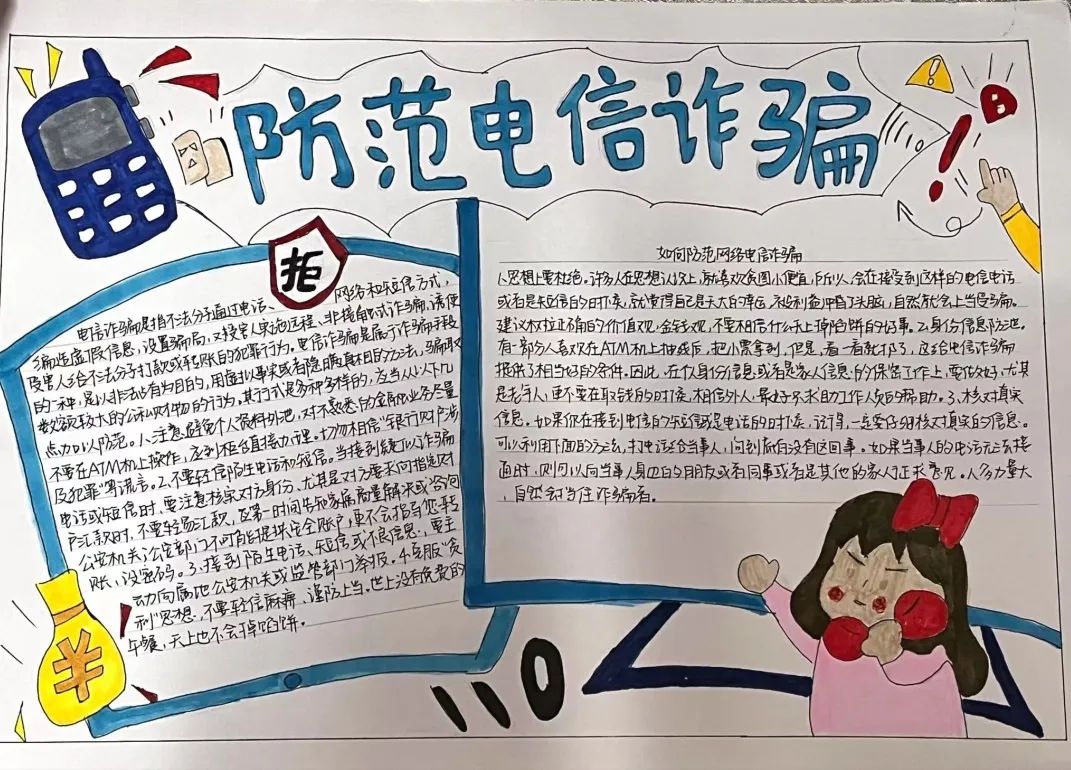 防范电信诈骗
拒
电信诈骗是指不法分子通过电话、网络和短信方式,
编造虚假信息,设置骗局,对受害人实施远程、非接触式诈骗,诱使
受害人给不法分子打款或转账的犯罪行为。电信诈骗是属于诈骗手段
的一种,是以非法占有为目的,用虚构事实或者隐瞒真相的办法,骗取
数额较大的公私财物的行为。其行式是多种多样的,应当从以下几
点加以防范。1、注意避免个人资料外泄,对不熟悉的金融业务尽量
不要在ATM机上操作,应到柜台直接办理。切勿相信"银行财户涉
及犯罪"等谎言。2、不要轻信陌生电话和短信。当接到疑似诈骗
电话或短信时,要注意核实对方身份、尤其是对方要求向指定财
户汇款时,不要轻易汇款,应第一时间告知家属商量解决或咨询
公安机关,公安部门不可能提供安全账户,更不会指导您转
账、设密码。3、接到陌生电话、短信或不良信息,要主
动向属地公安机关或监管部门举报。4、克服"贪
利"思想,不要轻信麻痹、谨防上当。世上没有免费的
午餐,天上也不会掉馅饼。
如何防范网络电信诈骗
1、思想上要杜绝。许多人在思想认识上,就喜欢贪图小便宜,所以会在接受到这样的电信电话
或者是短信的时候,就懂得自己是天大的幸运,被利益冲昏了头脑,自然就会上当受骗。
建议树立正确的价值观,金钱观,不要相信什么天上掉馅饼的好事。2、身份信息防泄。
有一部分人喜欢在ATM机上抽钱后,把小票拿到,但是,看一看就扔了,这给电信诈骗
提供了相当好的条件。因此,在个人身份信息或者是家人信息的保管工作上,要做好,尤其
是老年人,更不要在取钱的时候,相信外人,最好寻求助工作人员的帮助。3、核对真实
信息。如果你在接到电信的短信或是电话的时候,记得,一定要仔细核对真实的信息。
可以利用下面的方法,打电话给当事人,问到底有没有这回事。如果当事人的电话无法接
通时,则可以向当事人身边的朋友或者同事或者是其他的家人征求意见。人多力量大
,自然会当住诈骗者。
110